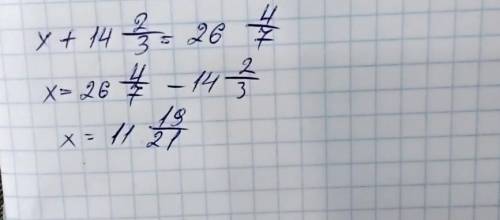 x + 14 2/3 = 26 4/7
x = 26 4/7 - 14 2/3
x = 11 19/21